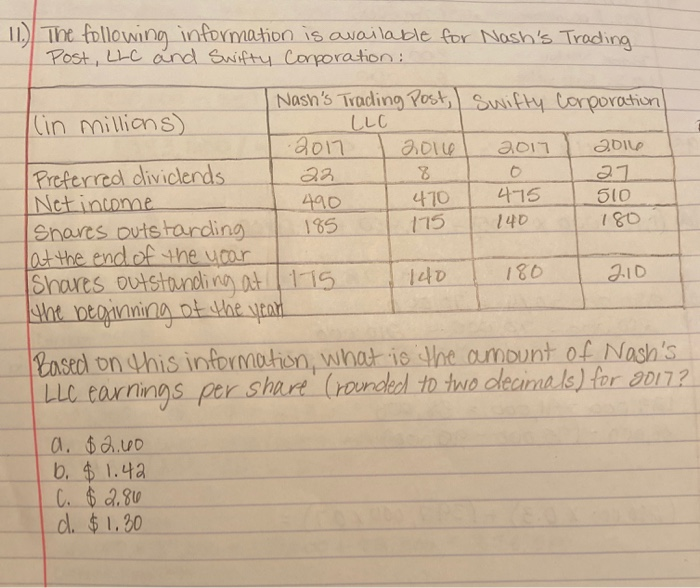 11.) The following information is available for Nash's Trading
Post, LLC and Swifty Corporation:
(in millions) Nash's Trading Post, LLC Swifty Corporation
2017 2016 2017 2016
Preferred dividends 22 8 0 27
Net income 490 470 475 510
Shares outstanding 185 175 140 180
at the end of the year
Shares outstanding at 175 140 180 210
the beginning of the year
Based on this information, what is the amount of Nash's
LLC earnings per share (rounded to two decimals) for 2017?
a. $2.60
b. $1.42
c. $2.86
d. $1.30